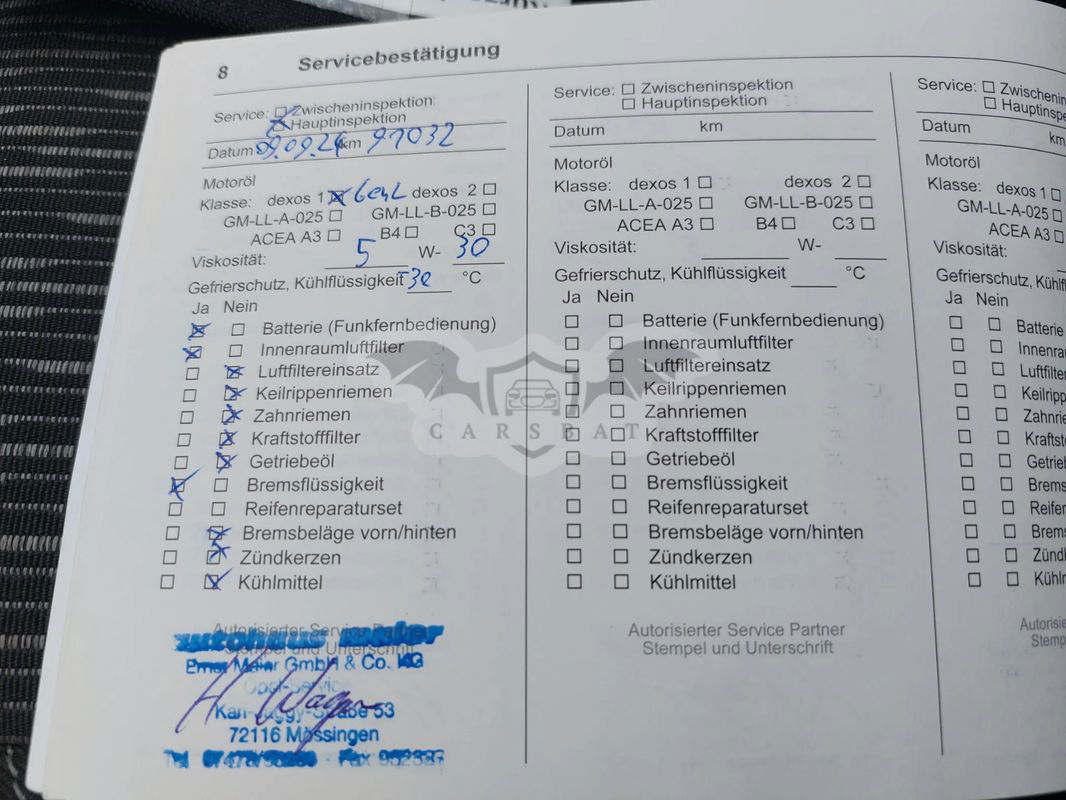 8 Servicebestätigung
Service: Zwischeninspektion
Hauptinspektion
Datum 09.09.24 km 97032
Motoröl
Klasse: dexos 1 dexos 2
GM-LL-A-025 GM-LL-B-025
ACEA A3 B4 C3
Viskosität: 5 W- 30
Gefrierschutz, Kühlflüssigkeit -30 °C
Ja Nein
Batterie (Funkfernbedienung)
Innenraumluftfilter
Luftfiltereinsatz
Keilrippenriemen
Zahnriemen
Kraftstofffilter
Getriebeöl
Bremsflüssigkeit
Reifenreparaturset
Bremsbeläge vorn/hinten
Zündkerzen
Kühlmittel
Autorisierter Service Partner
Stempel und Unterschrift
autohaus maier
Ernst Maier GmbH & Co. KG
Opel-Service
H. Wagner
72116 Mössingen
Service: Zwischeninspektion
Hauptinspektion
Datum km
Motoröl
Klasse: dexos 1 dexos 2
GM-LL-A-025 GM-LL-B-025
ACEA A3 B4 C3
Viskosität: W-
Gefrierschutz, Kühlflüssigkeit °C
Ja Nein
Batterie (Funkfernbedienung)
Innenraumluftfilter
Luftfiltereinsatz
Keilrippenriemen
Zahnriemen
Kraftstofffilter
Getriebeöl
Bremsflüssigkeit
Reifenreparaturset
Bremsbeläge vorn/hinten
Zündkerzen
Kühlmittel
Autorisierter Service Partner
Stempel und Unterschrift
Service: Zwischenin
Hauptinspe
Datum km
Motoröl
Klasse: dexos 1
GM-LL-A-025
ACEA A3
Viskosität:
Gefrierschutz, Kühlfl
Ja Nein
Batterie
Innenra
Luftfilte
Keilripp
Zahnrie
Kraftsto
Getrieb
Brems
Reifen
Brems
Zünd
Kühln
Autorisie
Stem
CARSBAT